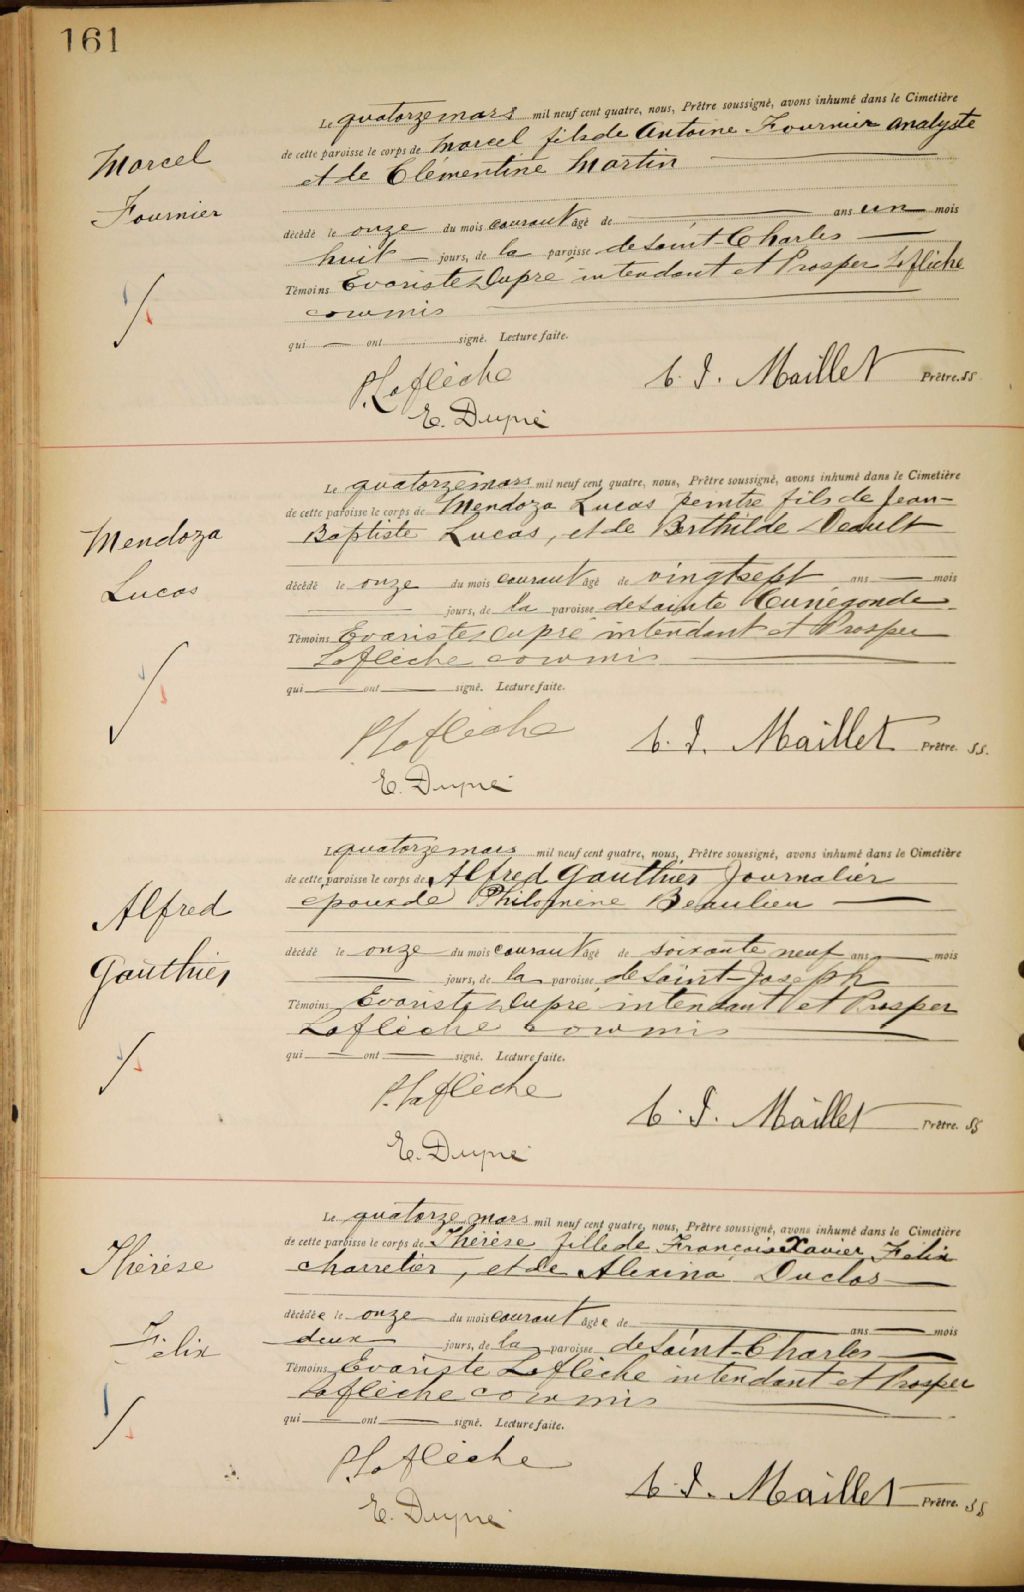 161
Marcel
Fournier
Le quatorze mars mil neuf cent quatre, nous, Prêtre soussigné, avons inhumé dans le Cimetière
de cette paroisse le corps de Marcel fils de Antoine Fournier analyste
et de Clémentine Martin
décédé le onze du mois courant âgé de ans un mois
huit jours, de la paroisse de Saint-Charles
Témoins Evariste Dupré intendant et Prosper Laflèche
commis
qui ont signé. Lecture faite.
P. Laflèche
C. J. Maillet Prêtre. SS
E. Dupré
Mendoza
Lucas
Le quatorze mars mil neuf cent quatre, nous, Prêtre soussigné, avons inhumé dans le Cimetière
de cette paroisse le corps de Mendoza Lucas peintre fils de Jean-
Baptiste Lucas, et de Berthilde Deault
décédé le onze du mois courant âgé de vingt sept ans mois
jours, de la paroisse de Sainte Cunégonde
Témoins Evariste Dupré intendant et Prosper
Laflèche commis
qui ont signé. Lecture faite.
P. Laflèche
C. J. Maillet Prêtre. SS.
E. Dupré
Alfred
Gauthier
Le quatorze mars mil neuf cent quatre, nous, Prêtre soussigné, avons inhumé dans le Cimetière
de cette paroisse le corps de Alfred Gauthier Journalier
epoux de Philomène Beaulieu
décédé le onze du mois courant âgé de soixante neuf ans mois
jours, de la paroisse de Saint-Joseph
Témoins Evariste Dupré intendant et Prosper
Laflèche commis
qui ont signé. Lecture faite.
P. Laflèche
C. J. Maillet Prêtre. SS
E. Dupré
Thérèse
Félix
Le quatorze mars mil neuf cent quatre, nous, Prêtre soussigné, avons inhumé dans le Cimetière
de cette paroisse le corps de Thérèse fille de François Xavier Felix
charretier, et de Alexina Duclos
décédée le onze du mois courant âgée de ans mois
deux jours, de la paroisse de Saint-Charles
Témoins Evariste Laflèche intendant et Prosper
Laflèche commis
qui ont signé. Lecture faite.
P. Laflèche
C. J. Maillet Prêtre. SS
E. Dupré